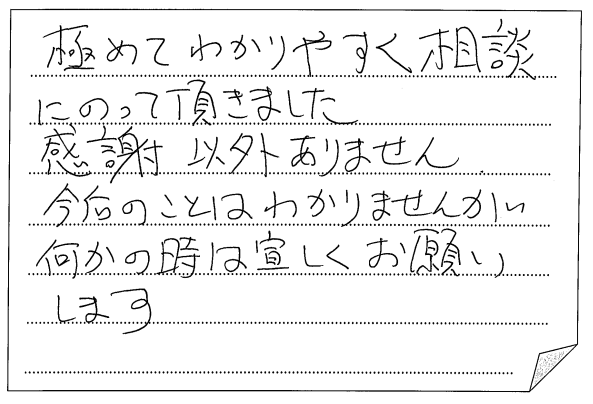 極めてわかりやすく相談
にのって頂きました
感謝以外ありません.
今后のことはわかりませんが
何かの時は宜しくお願い
します